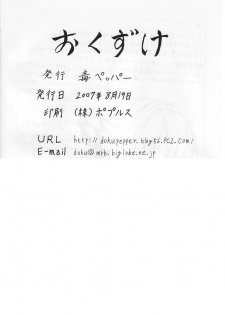 おくずけ
発行 毒ペッパー
発行日 2007年8月19日
印刷 (株)ポプルス
URL http://dokupepper.blog56.fc2.com/
E-mail toku@mrh.biglobe.ne.jp